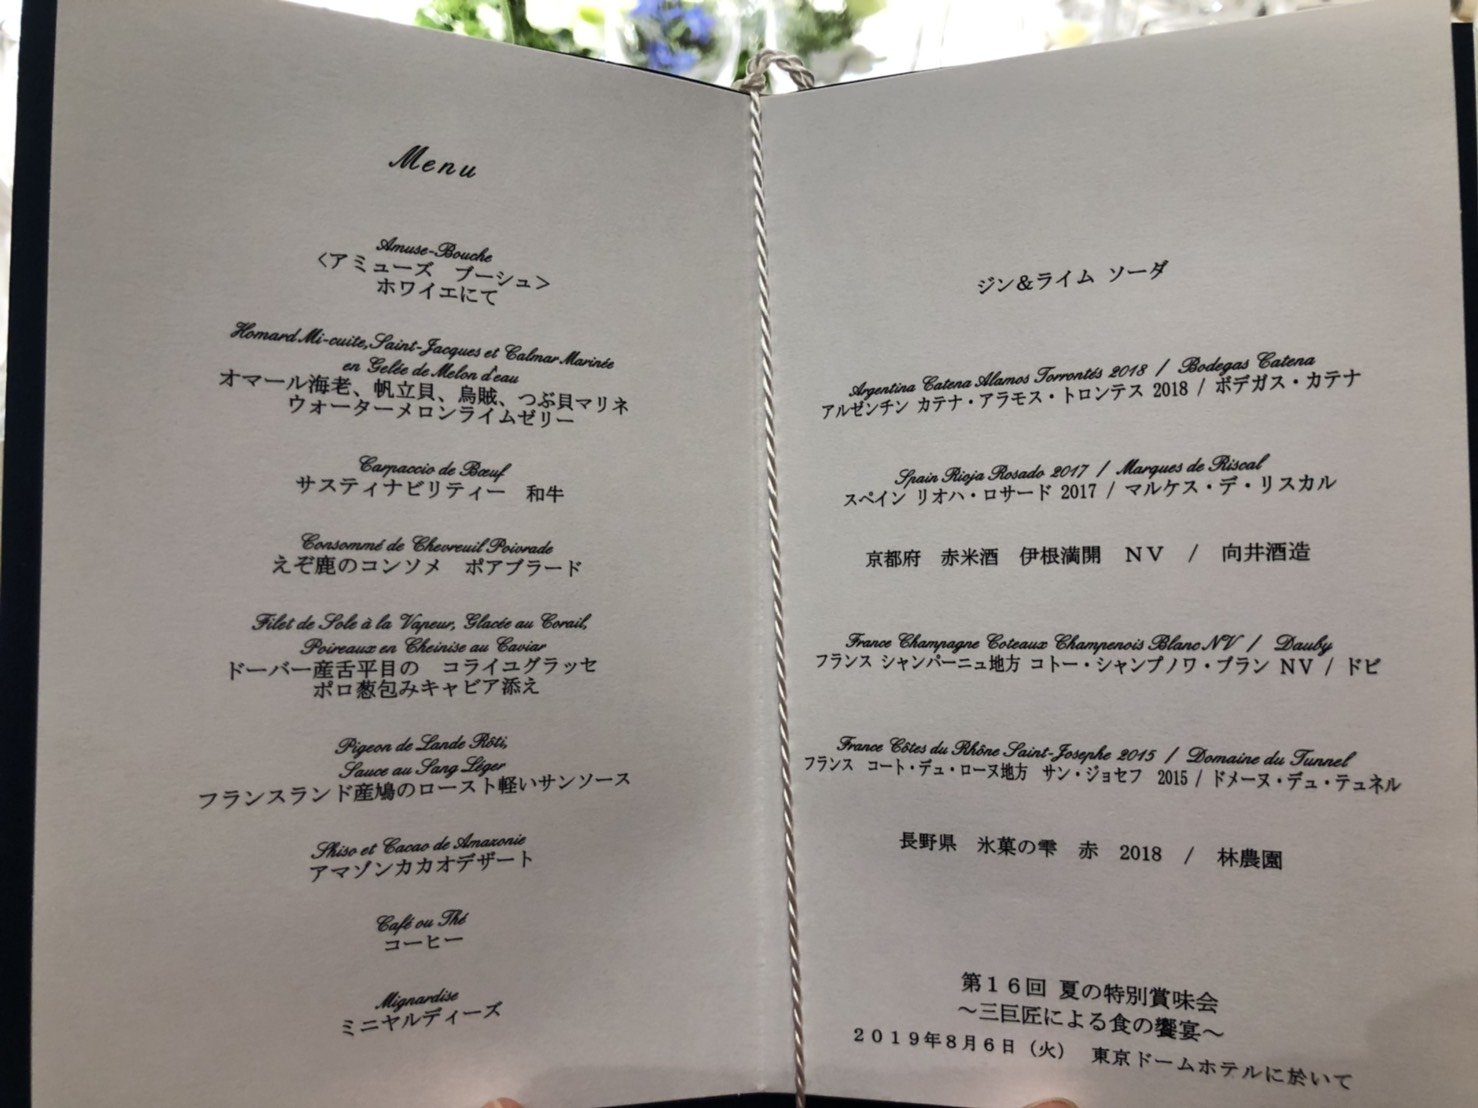 Menu
Amuse-Bouche
<アミューズ　ブーシュ>
ホワイエにて
Homard Mi-cuite, Saint-Jacques et Calmar Marinée
en Gelée de Melon d'eau
オマール海老、帆立貝、烏賊、つぶ貝マリネ
ウォーターメロンライムゼリー
Carpaccio de Bœuf
サスティナビリティー　和牛
Consommé de Chevreuil Poivrade
えぞ鹿のコンソメ　ポアブラード
Filet de Sole à la Vapeur, Glacée au Corail,
Poireaux en Cheinise au Caviar
ドーバー産舌平目の　コライユグラッセ
ポロ葱包みキャビア添え
Pigeon de Lande Rôti,
Sauce au Sang Léger
フランスランド産鳩のロースト軽いサンソース
Shiso et Cacao de Amazonie
アマゾンカカオデザート
Café ou Thé
コーヒー
Mignardise
ミニヤルディーズ
ジン&ライム ソーダ
Argentina Catena Alamos Torrontés 2018 / Bodegas Catena
アルゼンチン カテナ・アラモス・トロンテス 2018 / ボデガス・カテナ
Spain Rioja Rosado 2017 / Marques de Riscal
スペイン リオハ・ロサード 2017 / マルケス・デ・リスカル
京都府　赤米酒　伊根満開　ＮＶ　/　向井酒造
France Champagne Coteaux Champenois Blanc NV / Dauby
フランス シャンパーニュ地方 コトー・シャンプノワ・ブラン ＮＶ / ドビ
France Côtes du Rhône Saint-Josephe 2015 / Domaine du Tunnel
フランス　コート・デュ・ローヌ地方　サン・ジョセフ　2015 / ドメーヌ・デュ・テュネル
長野県　氷菓の雫　赤　2018　/　林農園
第１６回 夏の特別賞味会
～三巨匠による食の饗宴～
２０１９年８月６日（火）　東京ドームホテルに於いて